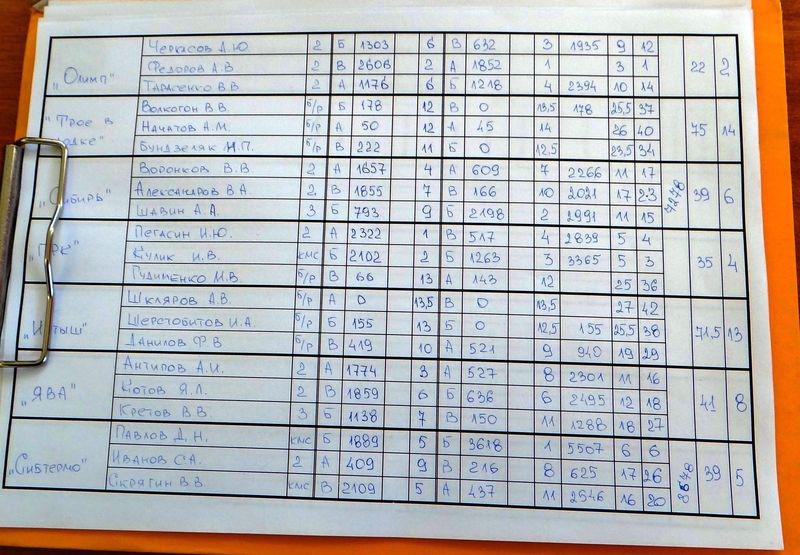 Черкасов А.Ю. 2 Б 1303 6 В 632 3 1935 9 12
"Олимп" Федоров А.В 2 В 2606 2 А 1852 1 3 1 22 2
Тарасенко В.В. 2 А 1176 6 Б 1218 4 2394 10 14
Волкогон В.В. б/р Б 178 12 В 0 13,5 178 25,5 37
"Трое в Начатов А.М. б/р А 50 12 А 45 14 26 40 75 14
Бундзеляк М.П. б/р В 222 11 Б 0 12,5 23,5 34
Воронков В.В. 2 А 1657 4 А 609 7 2266 11 17
"Сибирь" Александров В А 2 В 1855 7 В 166 10 2021 17 23 7278 39 6
Шавин А.А. 3 Б 793 9 Б 2198 2 2991 11 15
Пегасин И.Ю. 2 А 2322 1 В 517 4 2839 5 4
Кулик И.В. кмс Б 2102 2 Б 1263 3 3365 5 3 35 4
Гудименко М.В. б/р В 66 13 А 143 12 25 36
Шкляров А.В. б/р А 0 13,5 В 0 13,5 27 42
Шерстобитов И.А. б/р Б 155 13 Б 0 12,5 155 25,5 38 71,5 13
Данилов Ф В б/р В 419 10 А 521 9 940 19 29
Антипов А.И. 2 А 1774 3 А 527 8 2301 11 16
"ЯВА" Котов Я.Л. 2 В 1859 6 Б 636 6 2495 12 18 41 8
Кретов В.В. 3 Б 1138 7 В 150 11 1288 18 27
Павлов Д.Н. кмс Б 1889 5 Б 3618 1 5507 6 6
"Сибтермо" Иванов С.А. 2 А 409 9 В 216 8 625 17 26 39 5
Скрягин В.В кмс В 2109 5 А 437 11 2546 16 20